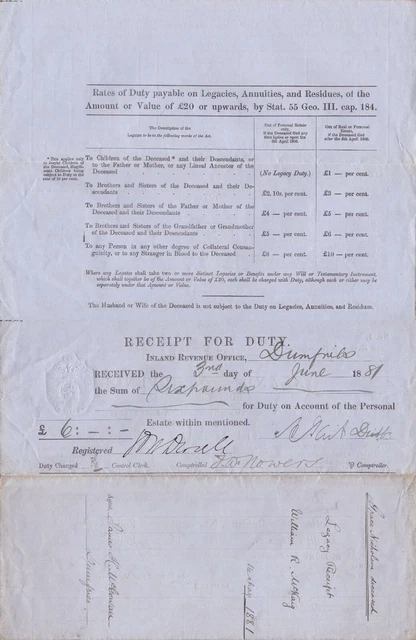 Rates of Duty payable on Legacies, Annuities, and Residues, of the
Amount or Value of £20 or upwards, by Stat. 55 Geo. III. cap. 184.
The Description of the
Legatee to be in the following words of the Act.
Out of Personal Estate
only,
if the Deceased died any
time before or upon the
5th April 1805.
Out of Real or Personal
Estate,
if the Deceased died
after the 5th April 1805.
To Children of the Deceased* and their Descendants, or
to the Father or Mother, or any Lineal Ancestor of the
Deceased
(No Legacy Duty.)
£1 — per cent.
To Brothers and Sisters of the Deceased and their De-
scendants
£2, 10s. per cent.
£3 — per cent.
To Brothers and Sisters of the Father or Mother of the
Deceased and their Descendants
£4 — per cent.
£5 — per cent.
To Brothers and Sisters of the Grandfather or Grandmother
of the Deceased and their Descendants
£5 — per cent.
£6 — per cent.
To any Person in any other degree of Collateral Consan-
guinity, or to any Stranger in Blood to the Deceased
£8 — per cent.
£10 — per cent.
Where any Legatee shall take two or more distinct Legacies or Benefits under any Will or Testamentary Instrument,
which shall together be of the Amount or Value of £20, each shall be charged with Duty, although each or either may be
separately under that Amount or Value.
The Husband or Wife of the Deceased is not subject to the Duty on Legacies, Annuities, and Residues.
RECEIPT FOR DUTY.
Inland Revenue Office, Dumfries
RECEIVED the 3rd day of June 1881
the Sum of Six pounds
for Duty on Account of the Personal
£ 6 : — : —
Estate within mentioned.
Registered
Duty Charged
Control Clerk.
Comptrolled
Comptroller.
Grace Nicholson deceased
Legacy Receipt
William R. McKay
1881
Dumfries